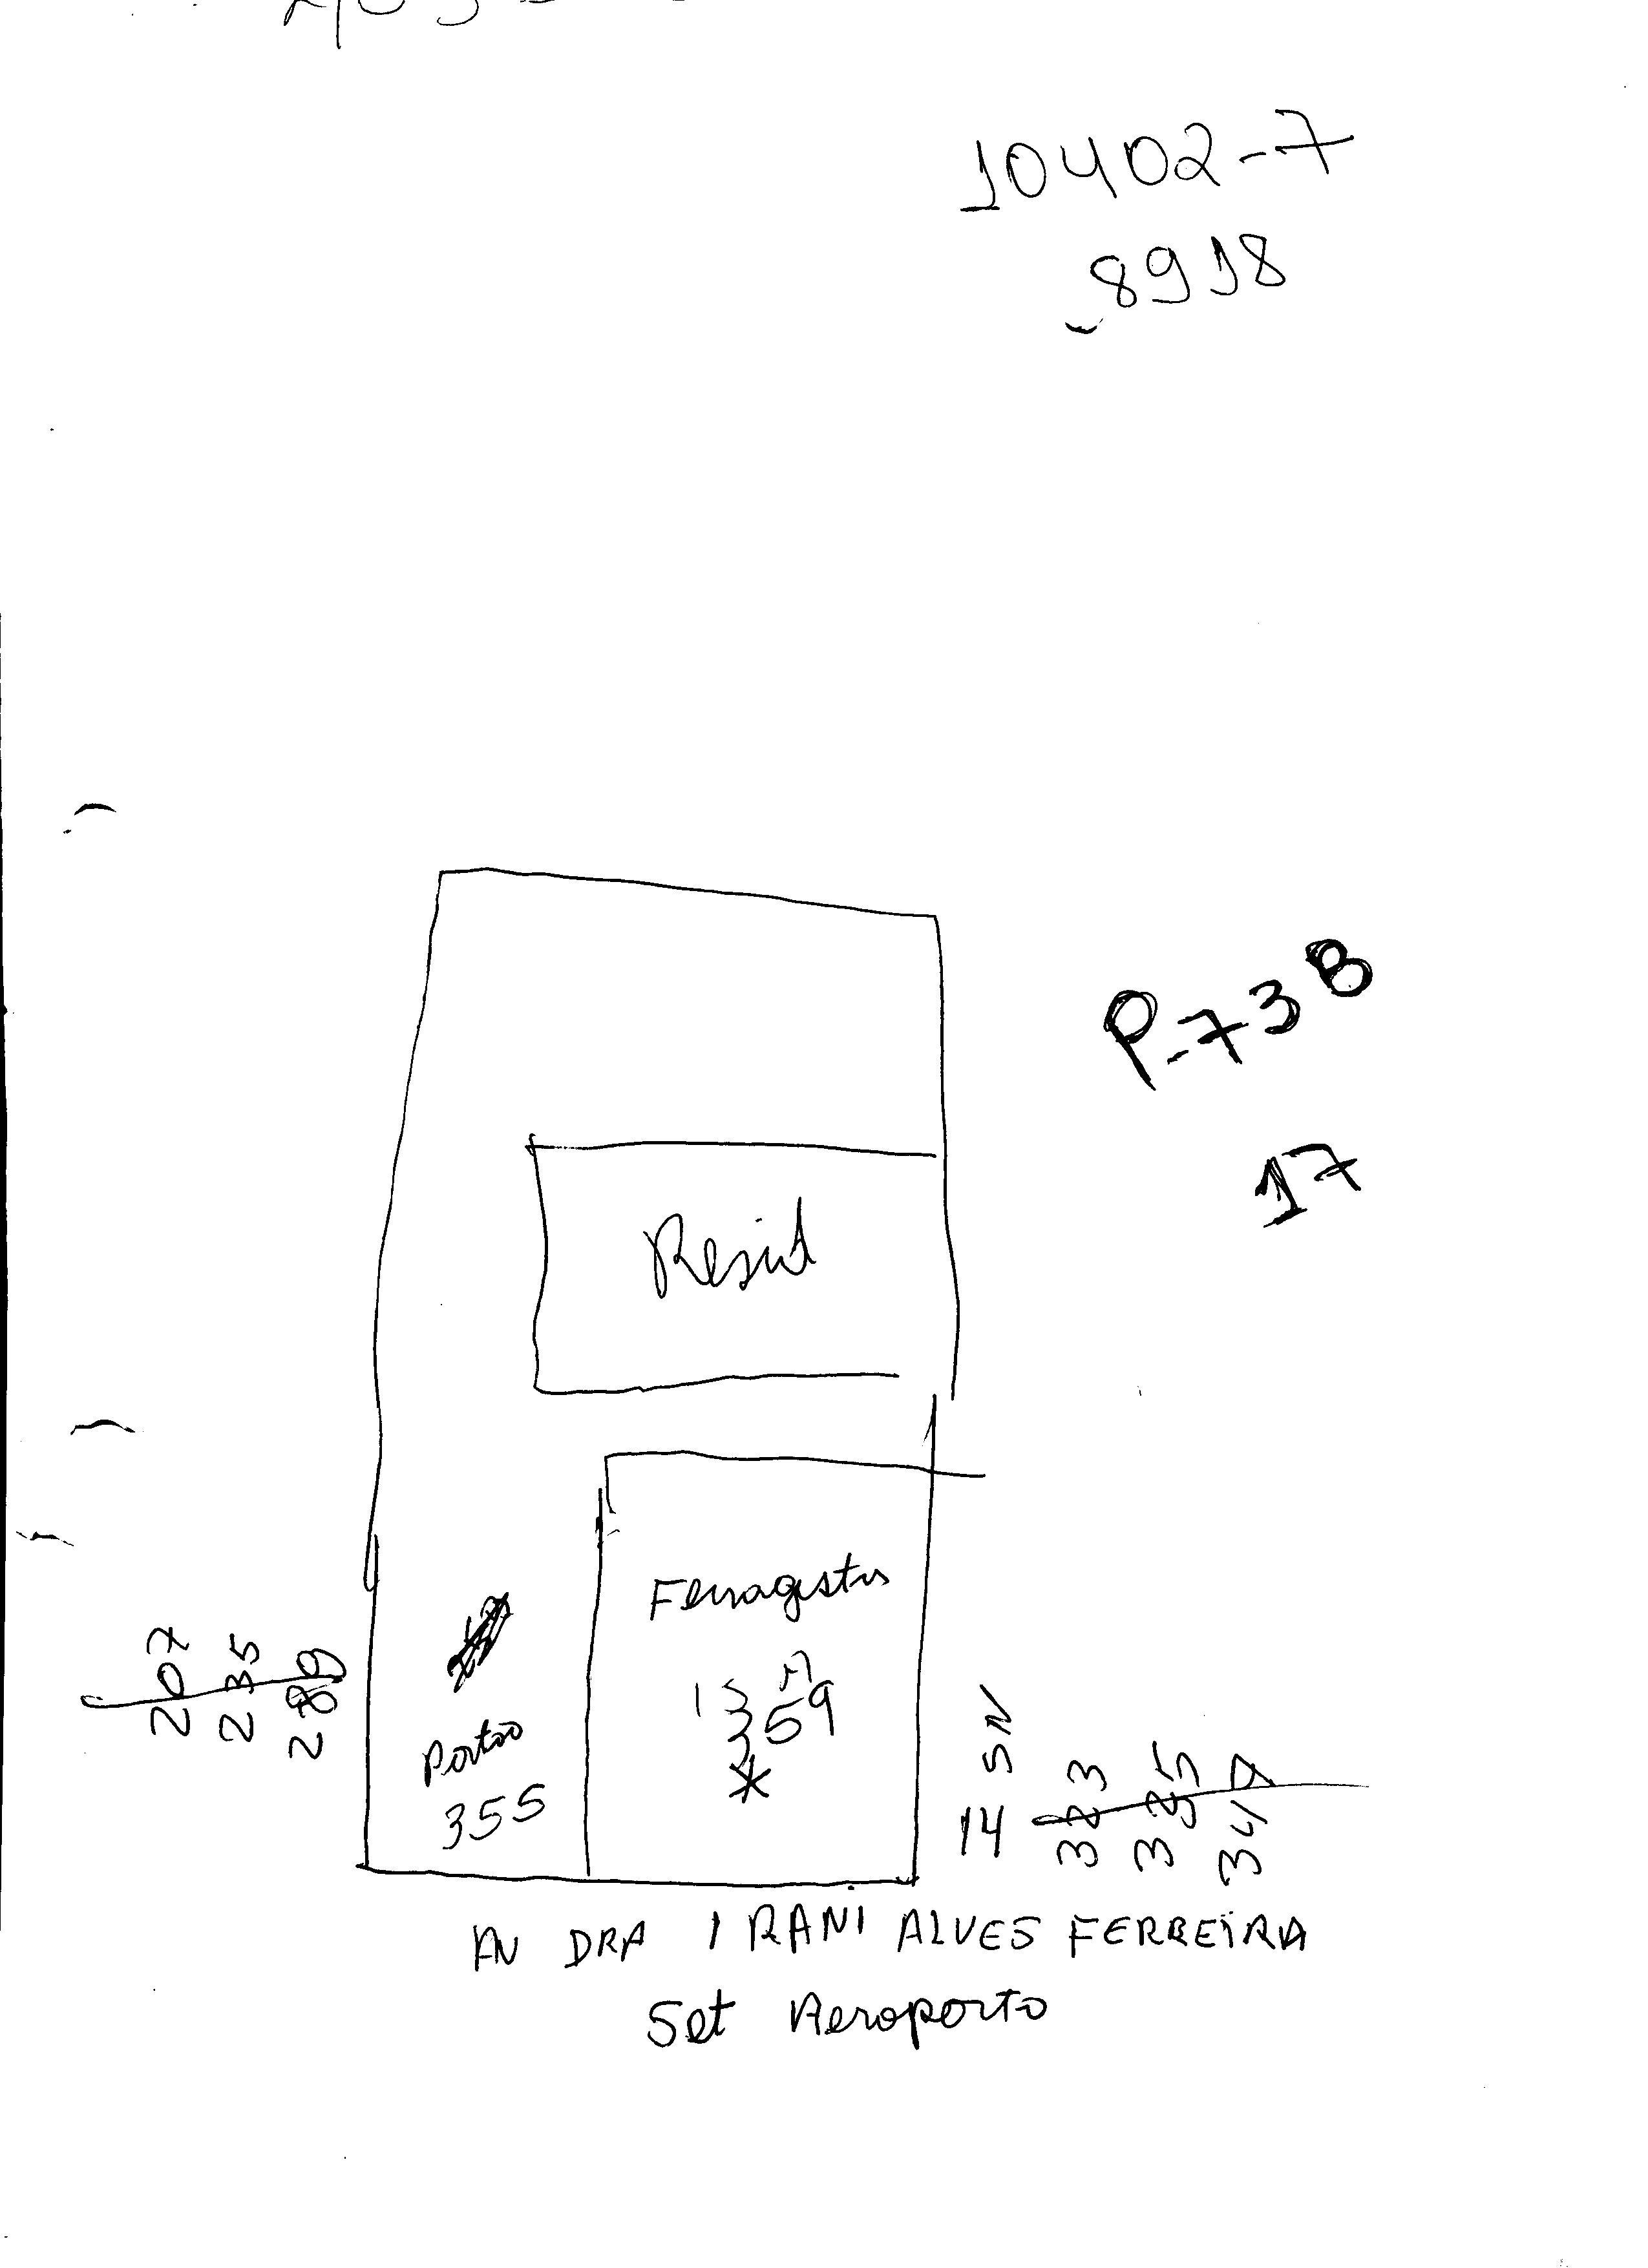 10402-7
8918
P-738
17
Resid
Ferragista
359
Portão
355
207
235
289
14 SN
323
325
347
AV DRA IRANI ALVES FERREIRA
Set Aeroporto